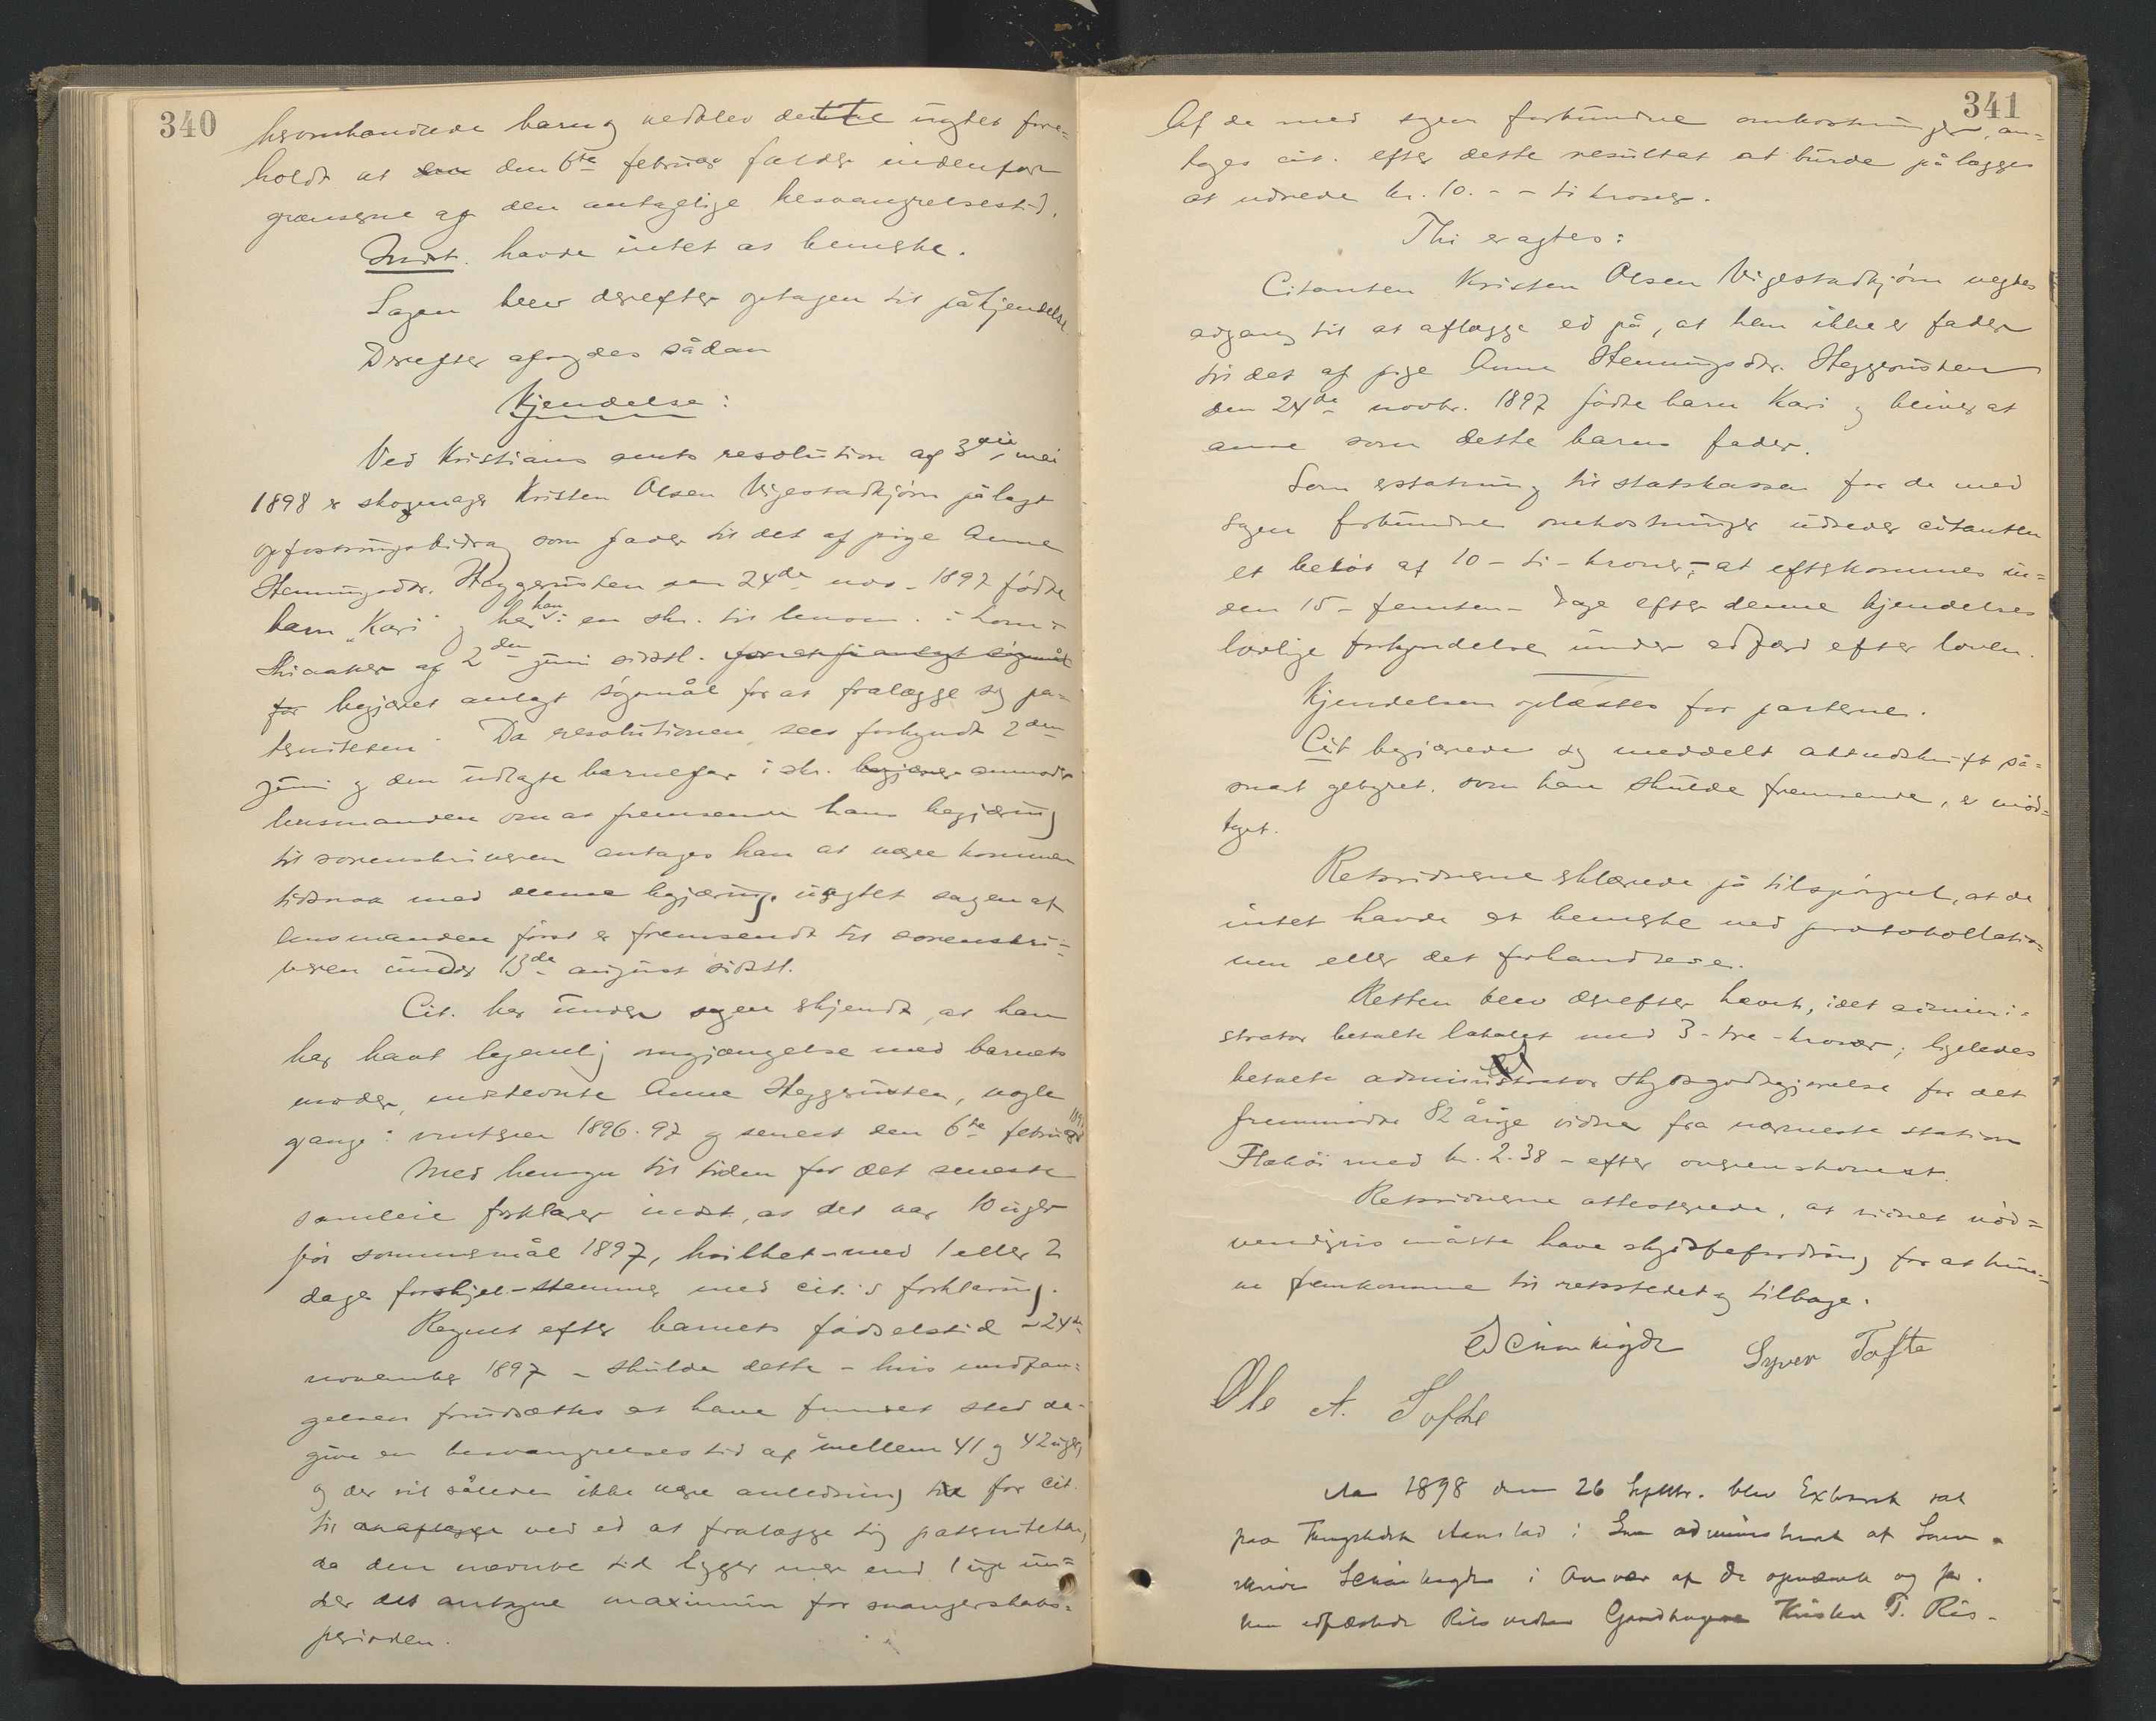 340
heromhandlede barn og vedblev dette ugtet fore=
holdt at den 6te februar falder indenfor
grænserne af den antagelige besvangrelsestid.
Indst. havde intet at bemerke.
Sagen blev derefter optagen til påkjendelse.
Derefter afsagdes sådan
Kjendelse:
Ved Kristians amts resolution af 3die mai
1898 er skogmager Kristen Olsen Vigestadkjørn pålagt
opfostringsbidrag som fader til det af pige Anne
Hemmingsdtr. Heggerusten den 24de nov. 1897 fødte
barn "Kari" og har han i en skr. til lensm. i Lom i
Skiaaker af 2den juni sidstl. for at få anlagt søgsmål
for begjæret anlagt søgsmål for at fralægge sig pa=
terniteten. Da resolutionen sees forkyndt 2den
juni og den udlagte barnefar i skr. begjærer anmoder
lensmanden om at fremsende hans begjæring
til sorenskriveren antages han at være kommen
tidsnok med denne begjæring, uagtet sagen af
lensmanden først er fremsendt til sorenskri=
veren under 13de august sidstl.
Cit. har under sagen erkjendt, at han
har havt legemlig omgjængelse med barnets
moder, indstevnte Anne Heggerusten, nogle
gange i vinteren 1896-97 og senest den 6te februar 1897
Med hensyn til tiden for det seneste
samleie forklarer indst. at det var 10 uger
før sommermål 1897, hvilket - med 1 eller 2
dage forskjel - stemmer med cit.'s forklaring.
Regnet efter barnets fødselstid - 24de
november 1897 - skulde dette - hvis undfan=
gelsen forudsættes at have fundet sted da -
give en besvangrelsestid af mellem 41 og 42 uger,
og der vil således ikke være anledning for cit.
til ved ed at fralægge sig paterniteten,
da den nævnte tid ligger mer end 1 uge un=
der det antagne maximum for svangerskabs=
perioden.
341
Af de med sagen forbundne omkostninger, an=
tages cit. efter dette resultat at burde pålægges
at udrede kr. 10. - - ti kroner.
Thi eragtes:
Citanten Kristen Olsen Vigestadkjørn negtes
adgang til at aflægge ed på, at han ikke er fader
til det af pige Anne Hemmingsdtr. Heggerusten
den 24de novbr. 1897 fødte barn Kari og bliver at
anse som dette barns fader.
Som erstatning til statskassen for de med
sagen forbundne omkostninger udreder citanten
et beløb af 10 - ti - kroner; - at efterkommes in=
den 15 - femten - dage efter denne kjendelses
lovlige forkyndelse under adfærd efter loven.
Kjendelsen oplæstes for parterne.
Cit. begjærede sig meddelt aktudskrift så=
snart gebyret, som han skulde fremsende, er mod=
taget.
Retsvidnerne erklærede på tilspørgsel, at de
intet havde at bemerke ved protokollatio=
nen eller det forhandlede.
Retten blev derefter hævet, idet admini=
strator betalte lokalet med 3 - tre - kroner; ligeledes
betalte administrator skydsgodtgjørelse for det
fremmødte 82 årige vidne fra nærmeste station
Flakøi med kr. 2.38 - efter overenskomst.
Retsvidnerne attesterede, at vidnet nød=
vendigvis måtte have skydsbefordring for at kun=
ne fremkomme til retsstedet og tilbage.
Syver Tofte
Ole A. Tofte
Aar 1898 den 26 Septbr. blev Extraret sat
paa Thingstedet Aanstad i administreret af Soren=
skriver i Overvær af de opnævnte og for=
hen edfæstede Retsvidner Gaardbrugerne Kristen T. Ris-